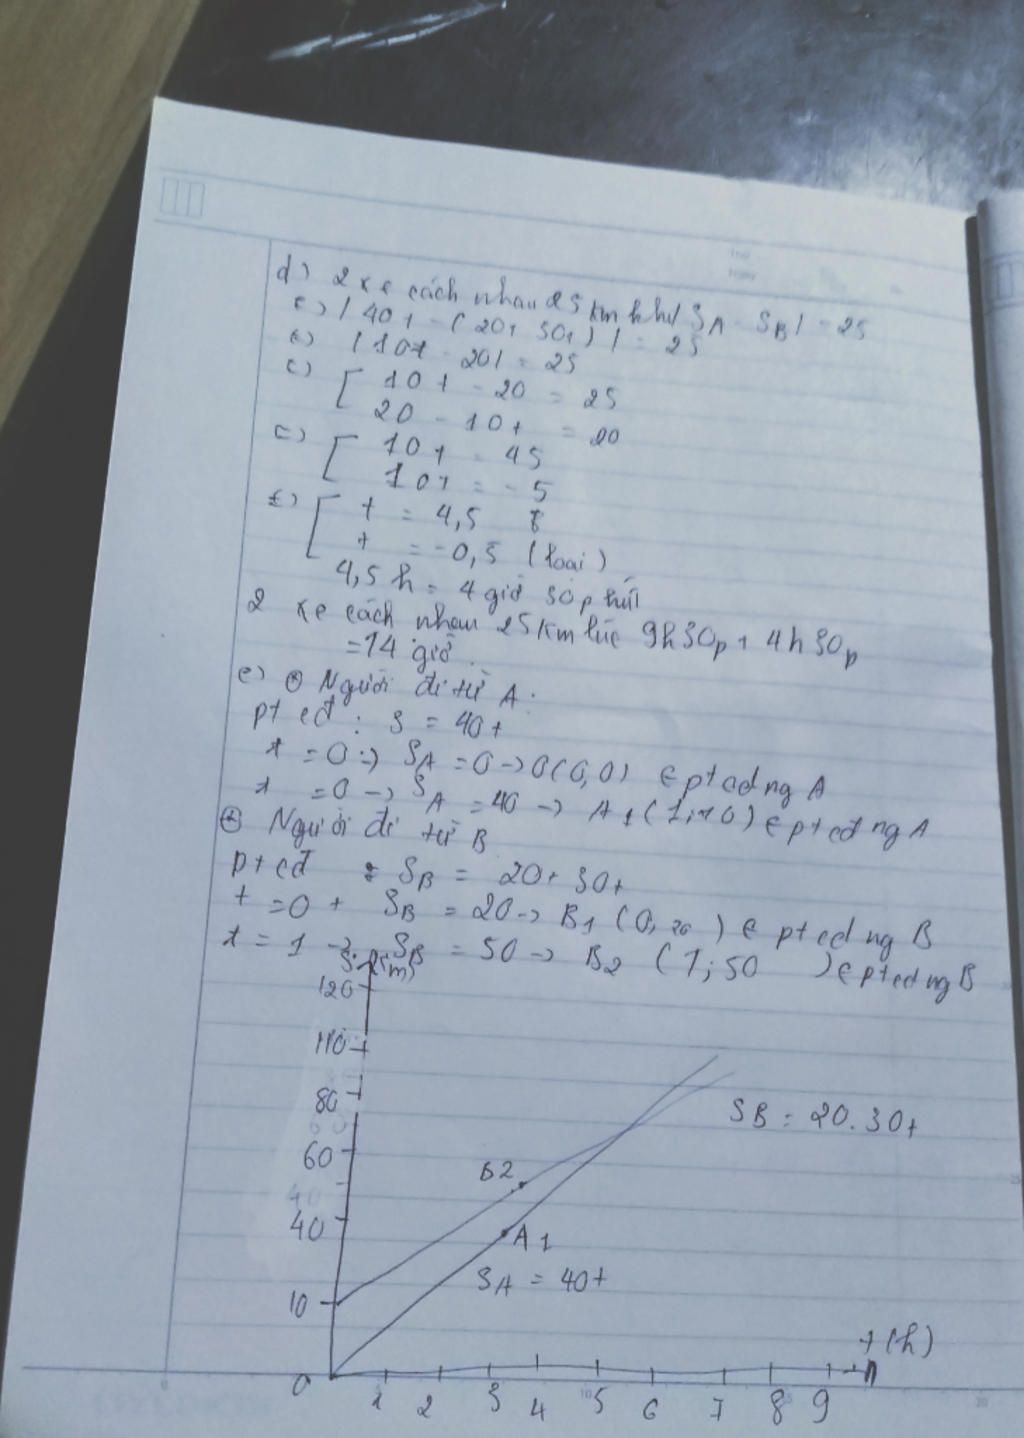 d) 2 xe cách nhau 25 km khi |SA - SB| = 25
(=) |40t - (20+ 30t)| = 25
(=) |10t - 20| = 25
(=) [ 10t - 20 = 25
20 - 10t = 20
(=) [ 10t = 45
10t = -5
(=) [ t = 4,5
t = -0,5 (loại)
4,5h = 4 giờ 30 phút
2 xe cách nhau 25 km lúc 9h30p + 4h30p
= 14 giờ.
e) Người đi từ A:
pt cđ: S = 40t
t = 0 => SA = 0 -> O(0,0) ∈ pt cđ ng A
t = 0 -> SA = 40 -> A1(1;40) ∈ pt cđ ng A
Người đi từ B
pt cđ : SB = 20+ 30t
t = 0 + SB = 20 -> B1 (0, 20) ∈ pt cđ ng B
t = 1 -> SB = 50 -> B2 (1;50) ∈ pt cđ ng B
S (km)
120
110
80
SB = 20.30t
60
B2
40
A1
SA = 40t
10
t (h)
0 1 2 3 4 5 6 7 8 9